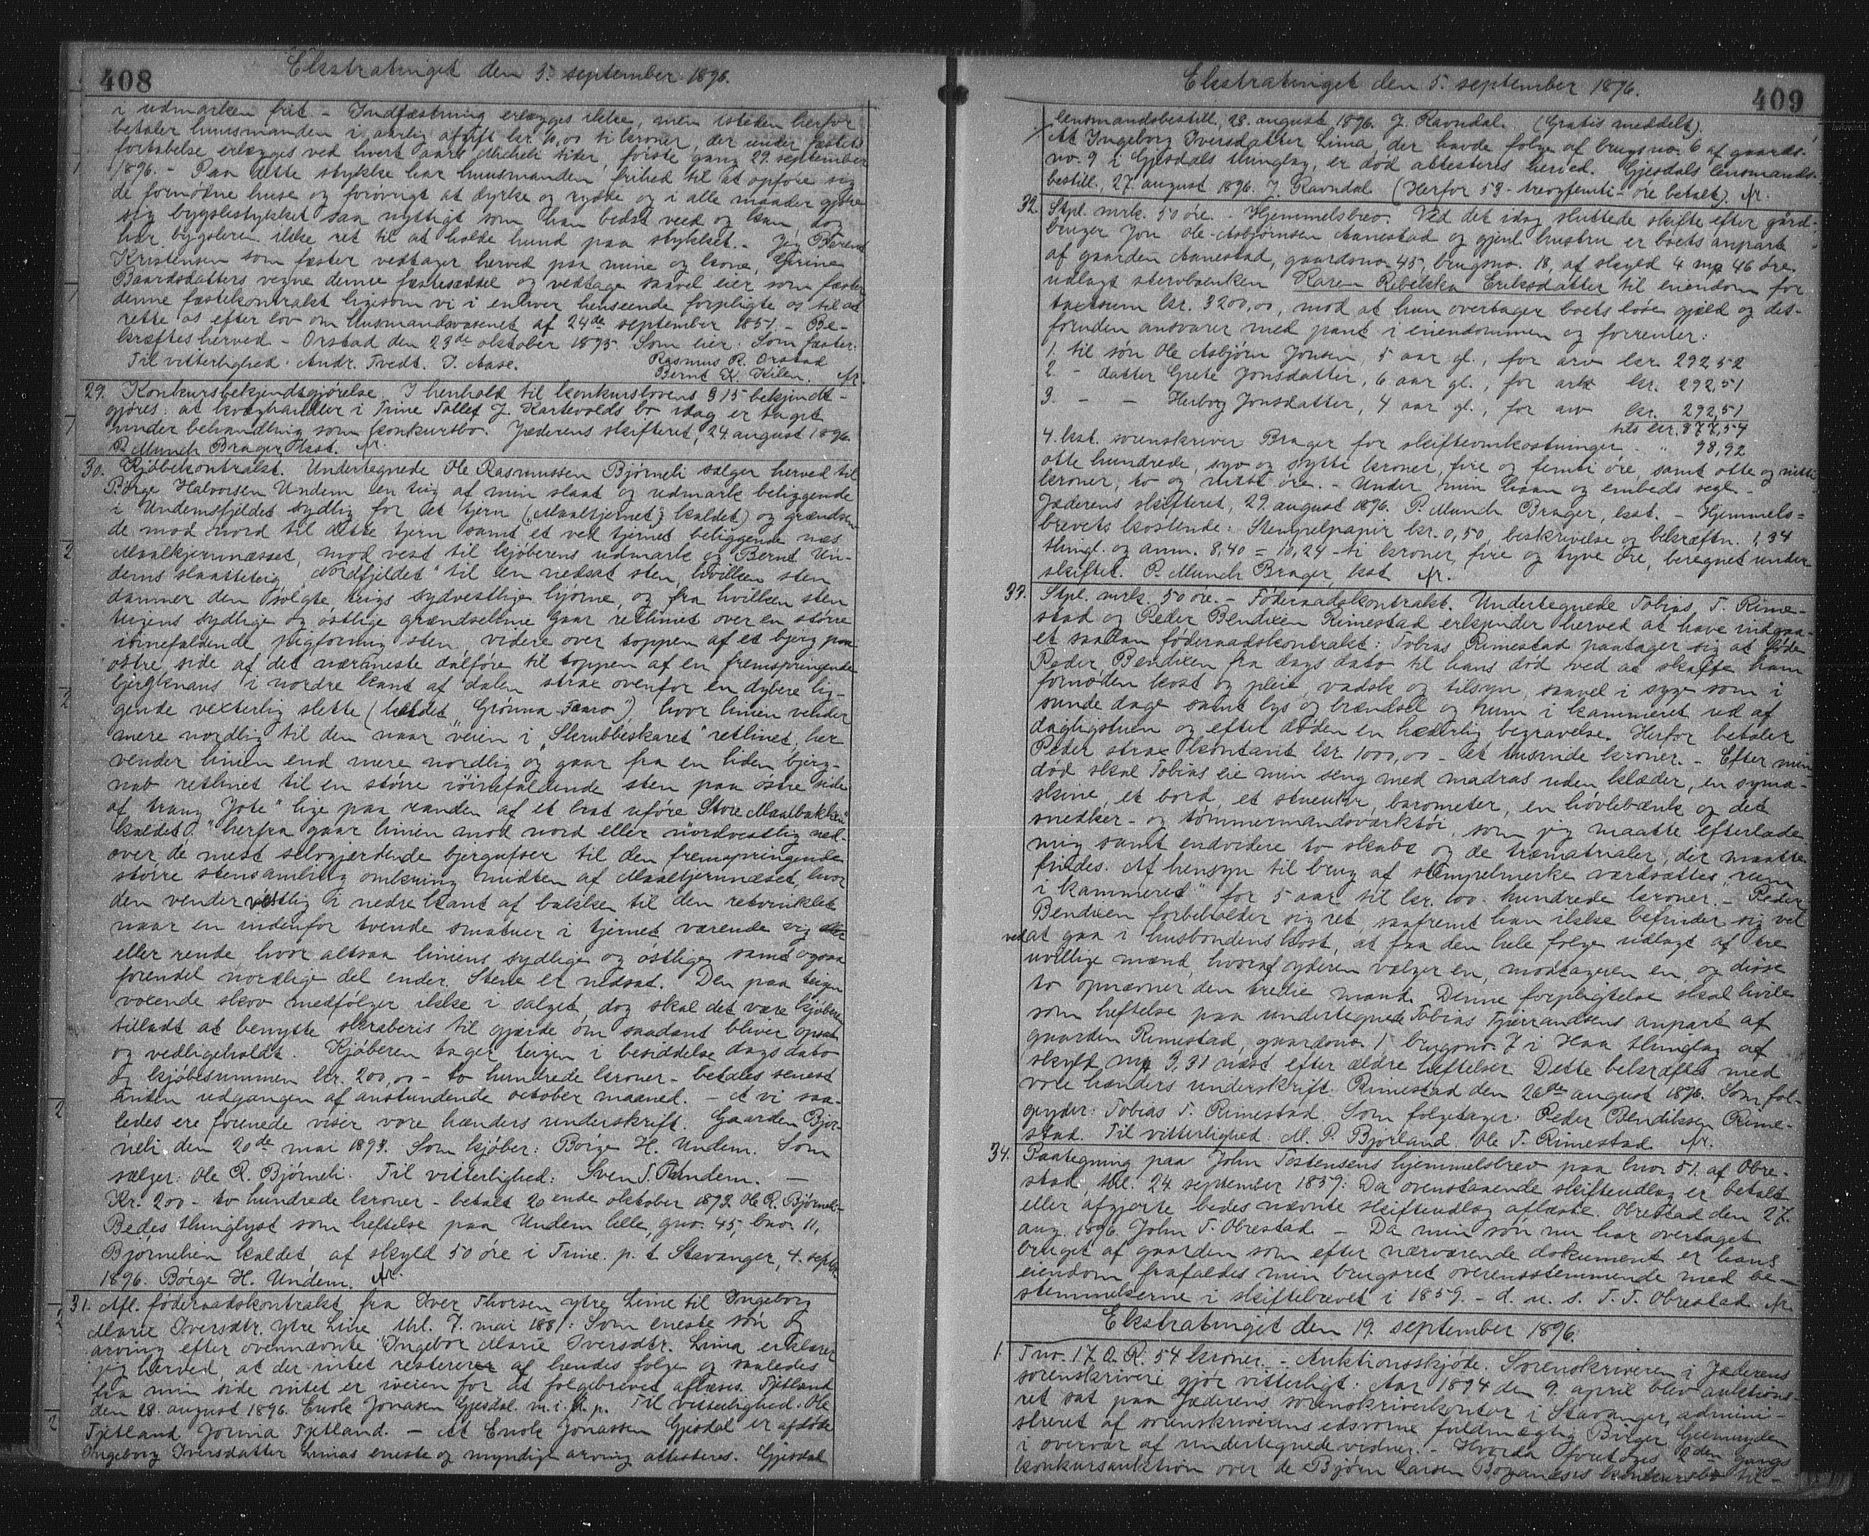 408
Ekstratinget den 5. september 1896.
i udmarken frit. - Indfæstning erlægges ikke, men isteden herfor
betaler huusmanden i aarlig afgift kr. 10,00 ti kroner, der under fæstets
fortabelse erlægges ved hvert aars Mikkeli tider, første gang 29. september
1896. - Paa dette stykke har huusmanden frihed til at opføre sig
de fornødne huse og forøvrigt at dyrke og rydde og i alle maader gjøre
sig bygslestykket saa nyttigt som han bedst veed og kan, dog
har bygsleren ikke ret til at holde hund paa stykket. - Jeg Berent
Kristensen som fæster vedtager herved paa mine og kone, Grine
Baardsdatters vegne denne fæstesæddel og vedtage saavel eier som fæster
denne fæstekontrakt ligesom vi i enhver henseende forpligte os til at
rette os efter lov om Husmandsvæsenet af 24de september 1851. - Be-
kræftes herved - Orstad den 23de oktober 1895. Som eier: Som fæster:
Til vitterlighed: Andr. Tvedt. J. Aase. Rasmus R. Orstad
Bernt K. Kilen. Nr.
29. Konkursbekjendtgjørelse. I henhold til konkurslovens § 15 bekjendt-
gjøres: at kvæghandler i Time Tollef J. Kartevolds bo idag er taget
under behandling som konkursbo. Jæderens skifteret, 24 august 1896.
P. Munch Brager, kst. Nr.
30. Kjøbekontrakt. Undertegnede Ole Rasmussen Bjørneli sælger herved til
Børge Halvorsen Undem en teig af min slaat og udmark beliggende
i Undemsfjeldet sydlig for det tjern ("Maaltjernet" kaldet) og grændsen-
de mod nord til dette tjern samt et ved tjernet beliggende næs
Maaltjernnæsset, mod vest til kjøberens udmark og Bernt Un-
dems slaatteteig "Nordfjeldet" til en nedsat sten, hvilken sten
danner den solgte teigs sydvestlige hjørne, og fra hvilken sten
teigens sydlige og østlige grændselinie gaar retlinet over en større
iøinefaldende jordfast sten, videre over toppen af et bjerg paa
østre side af det nærmeste dalføre til toppen af en fremspringende
bjergknaus i nordre kant af dalen strax ovenfor en dybere lig-
gende vexterlig slette (kaldet "Grønna Taaro"), hvor linien vender
mere nordlig til den naar veien i "Skrubbeskaret" retlinet, her
vender linien end mere nordlig og gaar fra en liden bjerg-
nab retlinet til en større iøinefaldende sten paa østre side
af trang "Jote" lige paa randen af et brat uføre "Store Maalbakken
kaldet". herfra gaar linien mod nord eller nordvestlig ned-
over de mest selvgjerdende bjergufser til den fremspringende
større stensamling omkring midten af Maaltjernnæset, hvor
den vender vestlig i nedre kant af bakken til den retvinklet
naar en indenfor tvende smaatuer i tjernet værende vig
eller rende, hvor altsaa liniens sydlige og østlige samt ogsaa
forendel nordlige del ender. Stene er nedsat. Den paa teigen
voxende skov medfølger ikke i salget, dog skal det være kjøberen
tilladt at benytte skraberis til gjærde om saadant bliver opsat
og vedligeholdt. Kjøberen tager teigen i besiddelse dags dato
og kjøbesummen kr. 200,00 - to hundrede kroner - betales senest
inden udgangen af anstundende october maaned. - At vi saa-
ledes ere forenede viser vore hænders underskrift. Gaarden Bjør-
neli den 20de mai 1893. Som kjøber: Børge H. Undem. Som
sælger: Ole R. Bjørneli. Til vitterlighed: Sven T. Undem. -
Kr. 200 - to hundrede kroner - betalt 20ende oktober 1893. Ole R. Bjørneli.
Bedes thinglyst som heftelse paa Undem lille, gno. 45, bno. 11,
Bjørnelien kaldet, af skyld 50 øre i Time. p. t. Stavanger, 4. septbr.
1896. Børge H. Undem. Nr.
31. Afl. føderaadskontrakt fra Iver Thorsen ytre Lime til Ingeborg
Marie Iversdtr. ytre Lime thl. 7. mai 1881: Som eneste søn og
arving efter ovennævnte Ingebor Marie Iversdtr. Lima erklærer
jeg herved, at der intet resterer af hendes folge og saaledes
fra min side intet er iveien for at folgebrevet aflæses. Tjetland
den 28. august 1896. Enok Jonasen Gjesdal. m. i. h. p. Til vitterlighed: Ole
Tjetland. Jorina Tjetland. - At Enok Jonassen Gjesdal er afdøde
Ingeborg Iversdatter Limas eneste og myndige arving attesteres. Gjesdal
Ekstratinget den 5. september 1896.
409
lensmandsbestill., 28. august 1896. J. Ravndal. (Gratis meddelt).
At Ingeborg Iversdatter Lima, der havde folge af brugsno. 6 af gaards-
no. 9 i Gjesdals thinglag, er død attesteres herved. Gjesdals lensmands-
bestill., 27. august 1896. J. Ravndal (Herfor 53 - treogfemti - øre betalt). Nr.
32. Stpl. mrk. 50 øre. - Hjemmelsbrev. Ved det idag sluttede skifte efter gård-
bruger Jon Ole Asbjørnsen Aanestad og gjenl. hustru er boets anpart
af gaarden Aanestad, gaardsno. 45, brugsno. 18, af skyld 4 mrk 46 øre,
udlagt stervboenken Karen Rebekka Eriksdatter til eiendom for
taxtsum kr. 3200,00, mod at hun overtager boets løse gjæld og des-
foruden ansvarer med pant i eiendommen og forrenter:
1. til søn Ole Asbjørn Jonsen, 5 aar gl., for arv kr. 292,52
2. - datter Grete Jonsdatter, 6 aar gl., for arv kr. 292,51
3. - - Herborg Jonsdatter, 4 aar gl., for arv kr. 292,51
tils. kr. 877,54
4. kst. sorenskriver Brager for skifteomkostninger . " 98,92
otte hundrede, syv og sytti kroner, fire og femti øre, samt otte og nitti
kroner, to og nitti øre. - Under min haan og embeds segl -
Jæderens skifteret, 29. august 1896. P. Munch Brager, kst. - Hjemmels-
brevets kostende: Stempelpapir kr. 0,50, beskrivelse og bekræftn. 1,34
thingl. og anm. 8,40 = 10,24 - ti kroner, fire og tyve øre, beregnet under
skiftet. P. Munch Brager, kst. Nr.
33. Stpl. mrk. 50 øre. - Føderaadskontrakt. Undertegnede Tobias T. Rime-
stad og Peder Bendixen Rimestad erkjender herved at have indgaa-
et saadan føderaadskontrakt: Tobias Rimestad paatager sig at føde
Peder Bendixen fra dags dato til hans død ved at skaffe ham
fornøden kost og pleie, vadsk og tilsyn, saavel i syge som i
sunde dage samt lys og brændsel og rum i kammeret ud af
dagligstuen og efter døden en hæderlig begravelse. Herfor betaler
Peder strax kontant kr. 1000,00 - et tusinde kroner. - Efter min
død skal Tobias eie min seng med madras uden klæder, en syma-
skine, et bord, et stueuhr, barometer, en høvlebænk og det
snedker- og tømmermandsværktøi, som jeg maatte efterlade
mig samt endvidere to skabe og de træmatrialer, der maatte
findes. Af hensyn til brug af stempelmerke værdsættes "rum
i kammeret" for 5 aar til kr. 100. hundrede kroner. - Peder
Bendixen forbeholder sig ret, saafremt han ikke befinder sig vel
ved at gaa i husbondens kost, at faa den hele folge udlagt af tre
uvillige mænd, hvoraf yderen vælger en, modtageren en, og disse
to opnævner den tredie mand. Denne forpligtelse skal hvile
som heftelse paa undertegnede Tobias Tjerrandsens anpart af
gaarden Rimestad, gaardsno. 1 brugsno. 7 i Haa thinglag af
skyld mrk 3,31 næst efter ældre heftelser. Dette bekræftes med
vore hænders underskrift. Rimestad den 26de august 1896. Som fol-
gegyder: Tobias T. Rimestad. Som folgetager: Peder Bendiksen Rime-
stad. Til vitterlighed. M. P. Bjorland. Ole T. Rimestad. Nr.
34. Paategning paa John Tostensens hjemmelsbrev paa bno. 51. af Obre-
stad, thl. 24. september 1859: Da ovenstaaende skifteudlæg er betalt
eller afgjorte bedes nævnte skifteudlæg aflæste. Obrestad den 27.
aug. 1896. John T. Obrestad - Da min søn nu har overtaget
bruget af gaarden som efter nærværende dokument er hans
eiendom frafaldes min brugsret overensstemmende med be-
stemmelserne i skiftebrevet i 1859. - d. u. s. T. T. Obrestad. Nr.
Ekstratinget den 19. september 1896.
1. Tno. 17. O. R. 54 kroner. - Auktionsskjøde. Sorenskriveren i Jæderens
sorenskriveri gjør vitterligt: Aar 1894 den 9. april blev auktions-
ret sat paa Jæderens sorenskriverkontor i Stavanger, admini-
streret af sorenskriverens edsvorne fuldmægtig Birger
i overvær af undertegnede vidner. - Hvorda foretoges 2den gangs
konkursauktion over de Bjørn Larsen konkursbo til-